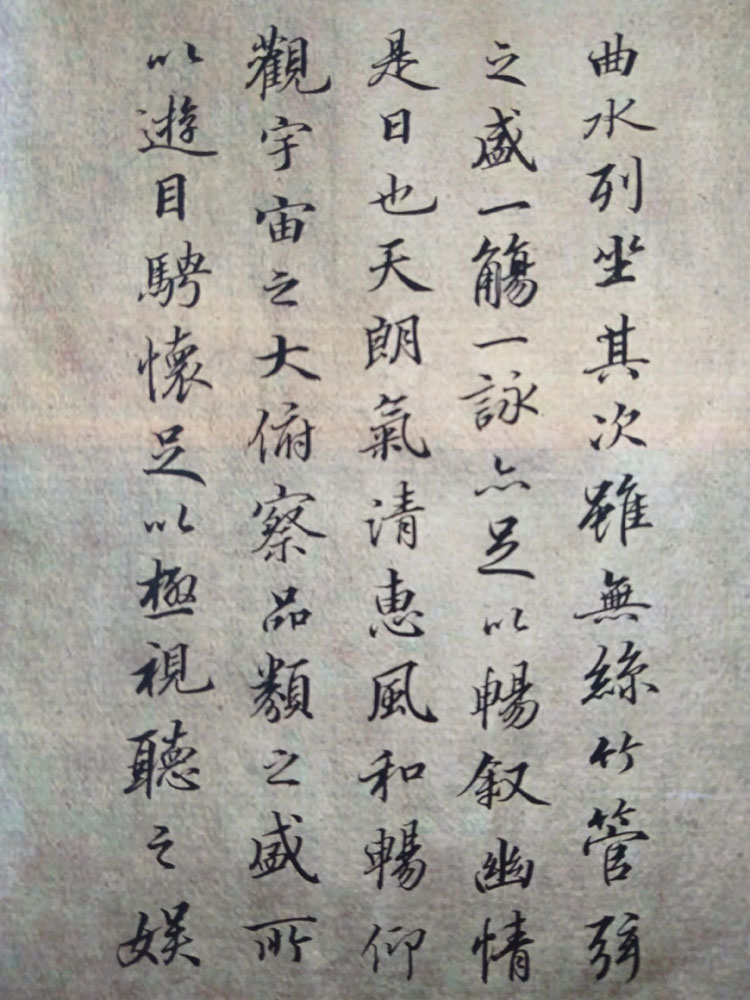 曲水列坐其次雖無絲竹管弦
之盛一觴一詠亦足以暢叙幽情
是日也天朗氣清惠風和暢仰
觀宇宙之大俯察品類之盛所
以遊目騁懷足以極視聽之娱